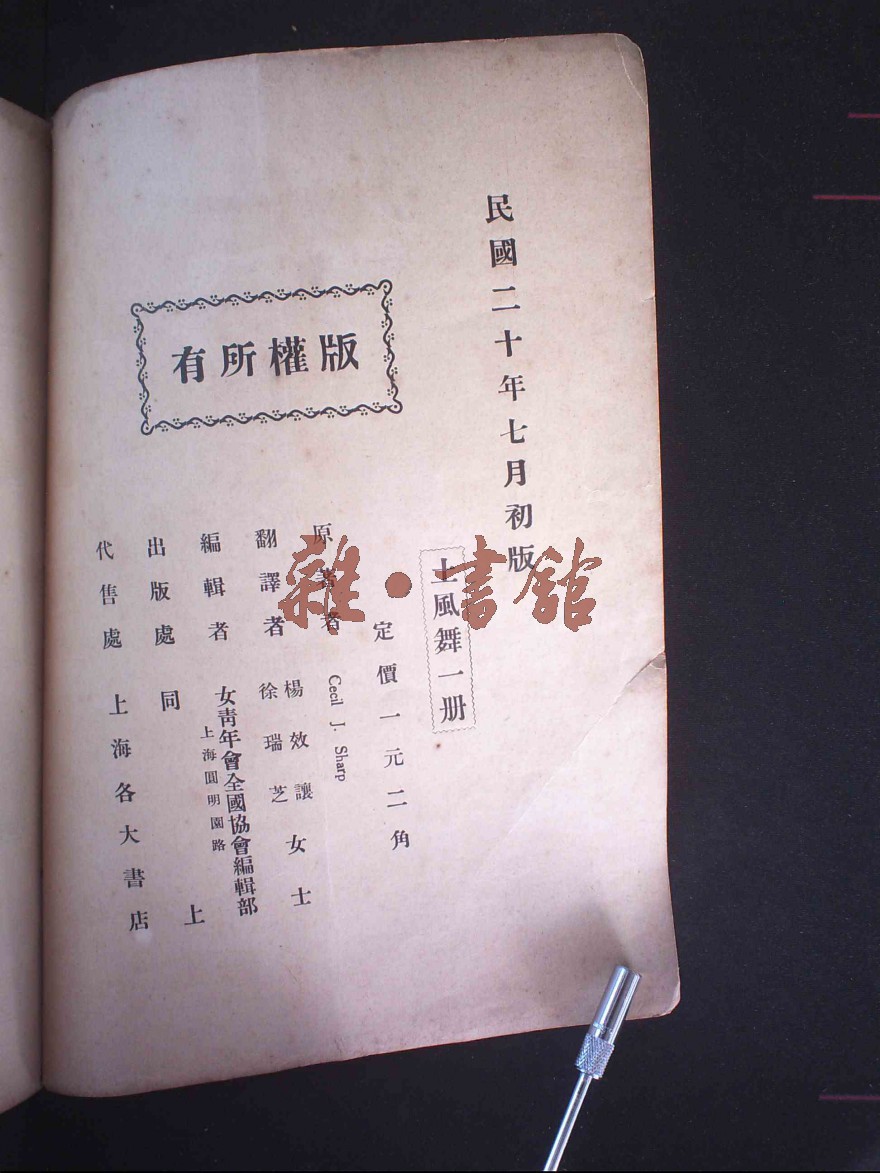 民國二十年七月初版
土風舞一册
定價一元二角
原著者 Cecil J. Sharp
翻譯者 楊效讓女士
徐瑞芝
編輯者 女青年會全國協會編輯部
上海圓明園路
出版處 同上
代售處 上海各大書店
版權所有
雜·書館